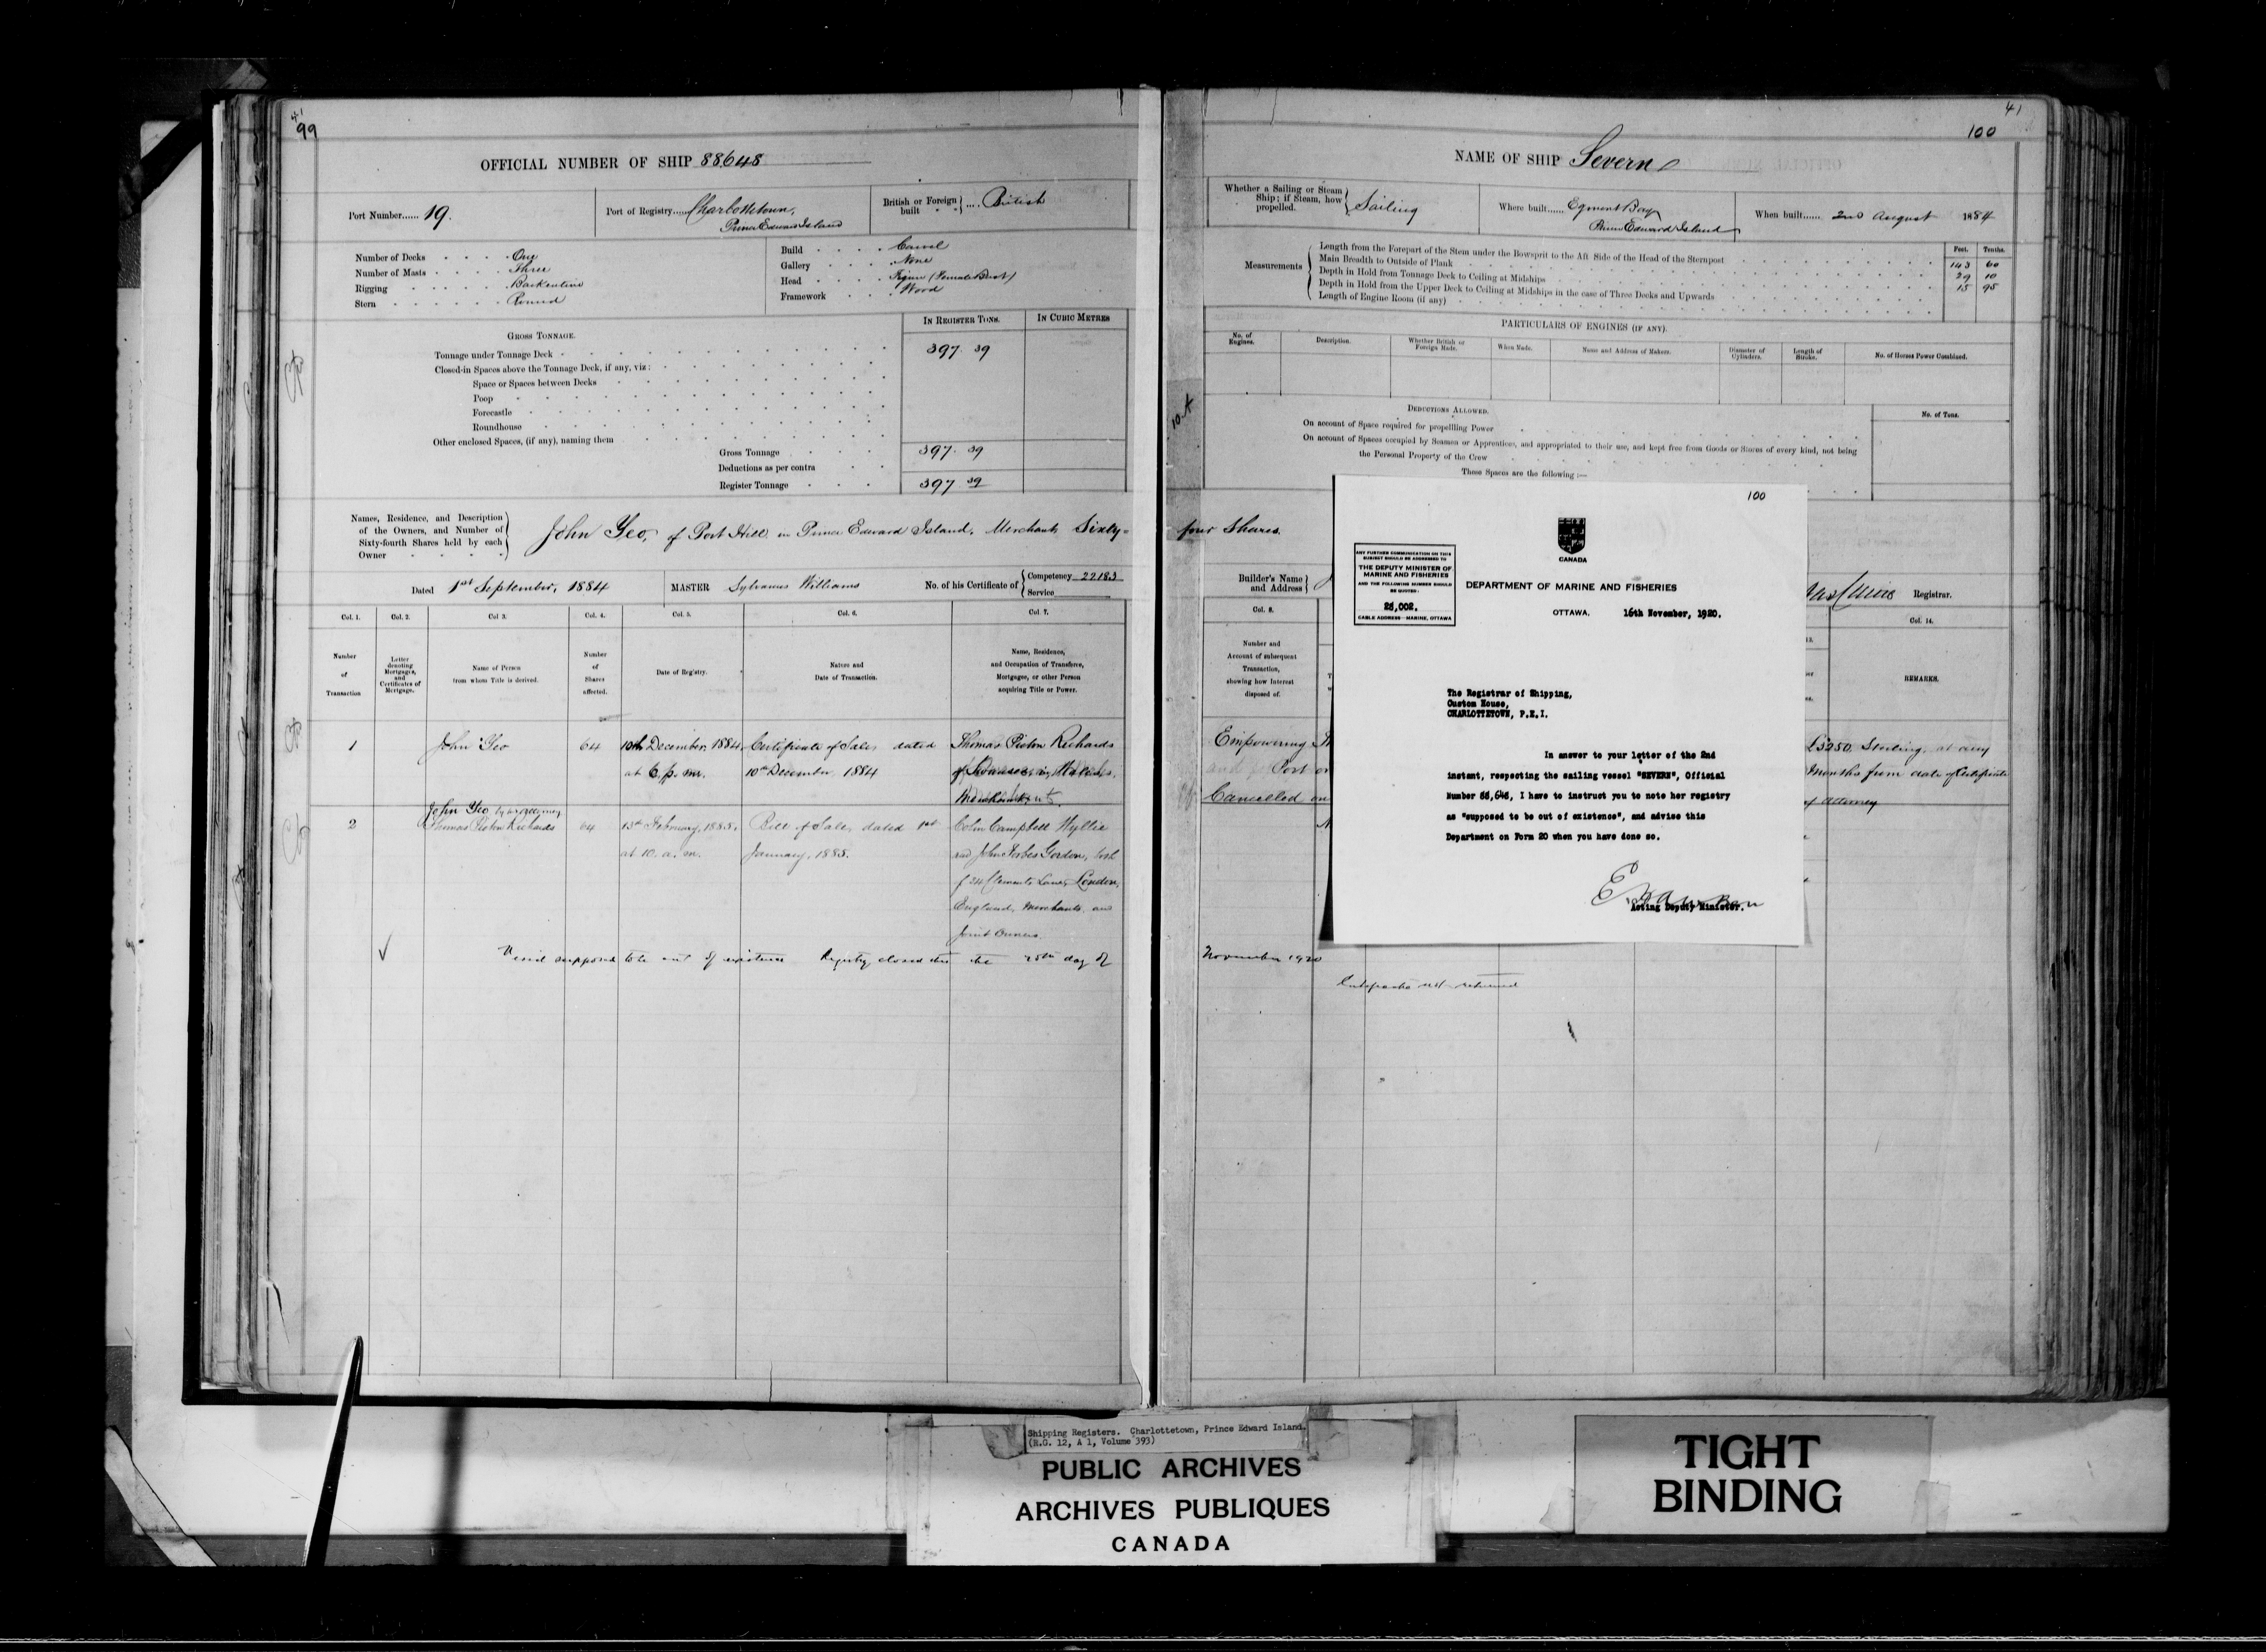 41
99
OFFICIAL NUMBER OF SHIP 88,648
Port Number...... 19.
Port of Registry..... Charlottetown,
Prince Edward Island
British or Foreign built .... British
Number of Decks One
Number of Masts Three
Rigging Barkentine
Stern Round
Build Carvel
Gallery None
Head Figure (Female Bust)
Framework Wood
GROSS TONNAGE.
IN REGISTER TONS.
IN CUBIC METRES
Tonnage under Tonnage Deck 397.39
Closed-in Spaces above the Tonnage Deck, if any, viz:
Space or Spaces between Decks
Poop
Forecastle
Roundhouse
Other enclosed Spaces, (if any), naming them
Gross Tonnage 397.39
Deductions as per contra
Register Tonnage 397.39
Names, Residence, and Description
of the Owners, and Number of
Sixty-fourth Shares held by each
Owner
John Yeo, of Port Hill in Prince Edward Island, Merchant, Sixty-
Dated 1st September, 1884
MASTER Sylvanus Williams
No. of his Certificate of Competency 22183
Service
Col. 1.
Col. 2.
Col 3.
Col. 4.
Col. 5.
Col. 6.
Col. 7.
Number
of
Transaction
Letter
denoting
Mortgages,
and
Certificates of
Mortgage.
Name of Person
from whom Title is derived.
Number
of
Shares
affected.
Date of Registry.
Nature and
Date of Transaction.
Name, Residence,
and Occupation of Transferee,
Mortgagee, or other Person
acquiring Title or Power.
1 John Yeo 64 10th December, 1884, Certificate of Sale, dated Thomas Picton Richards
at 6. p. m. 10th December, 1884 of Swansea, in Wales,
Merchant
John Yeo by his attorney
2 Thomas Picton Richards 64 13th February, 1885, Bill of Sale, dated 1st Colin Campbell Wyllie
at 10. a. m. January, 1885. and John Forbes Gordon, both
of 24 Clements Lane, London,
England, Merchants and
Joint Owners.
Vessel supposed to be out of existence Registry closed this the 25th day of
41
100
NAME OF SHIP Severn
Whether a Sailing or Steam
Ship; if Steam, how
propelled. Sailing
Where built...... Egmont Bay
Prince Edward Island
When built...... 2nd August 1884
Measurements
Feet. Tenths.
Length from the Forepart of the Stem under the Bowsprit to the Aft Side of the Head of the Sternpost 143 60
Main Breadth to Outside of Plank 29 10
Depth in Hold from Tonnage Deck to Ceiling at Midships 15 95
Depth in Hold from the Upper Deck to Ceiling at Midships in the case of Three Decks and Upwards
Length of Engine Room (if any)
PARTICULARS OF ENGINES (IF ANY).
No. of
Engines.
Description.
Whether British or
Foreign Made.
When Made.
Name and Address of Makers.
Diameter of
Cylinders.
Length of
Stroke.
No. of Horses Power Combined.
10-A
DEDUCTIONS ALLOWED.
No. of Tons.
On account of Space required for propelling Power
On account of Spaces occupied by Seamen or Apprentices, and appropriated to their use, and kept free from Goods or Stores of every kind, not being
the Personal Property of the Crew
These Spaces are the following :—
four Shares.
Builder's Name
and Address
Registrar.
Col. 8.
Col. 14.
Number and
Account of subsequent
Transaction,
showing how Interest
disposed of.
REMARKS.
Empowering
£3250, Sterling, at any
Port
Months from date of Certificate
Cancelled
of Attorney
November 1920
Certificate not returned
100
CANADA
ANY FURTHER COMMUNICATION ON THIS
SUBJECT SHOULD BE ADDRESSED TO
THE DEPUTY MINISTER OF
MARINE AND FISHERIES
AND THE FOLLOWING NUMBER SHOULD
BE QUOTED:
CABLE ADDRESS—MARINE, OTTAWA
DEPARTMENT OF MARINE AND FISHERIES
OTTAWA. 16th November, 1920.
The Registrar of Shipping,
Custom House,
CHARLOTTETOWN, P.E.I.
In answer to your letter of the 2nd
instant, respecting the sailing vessel "SEVERN", Official
Number 88,648, I have to instruct you to note her registry
as "supposed to be out of existence", and advise this
Department on Form 20 when you have done so.
Acting Deputy Minister.
Shipping Registers. Charlottetown, Prince Edward Island.
(R.G. 12, A 1, Volume 393)
PUBLIC ARCHIVES
ARCHIVES PUBLIQUES
CANADA
TIGHT
BINDING